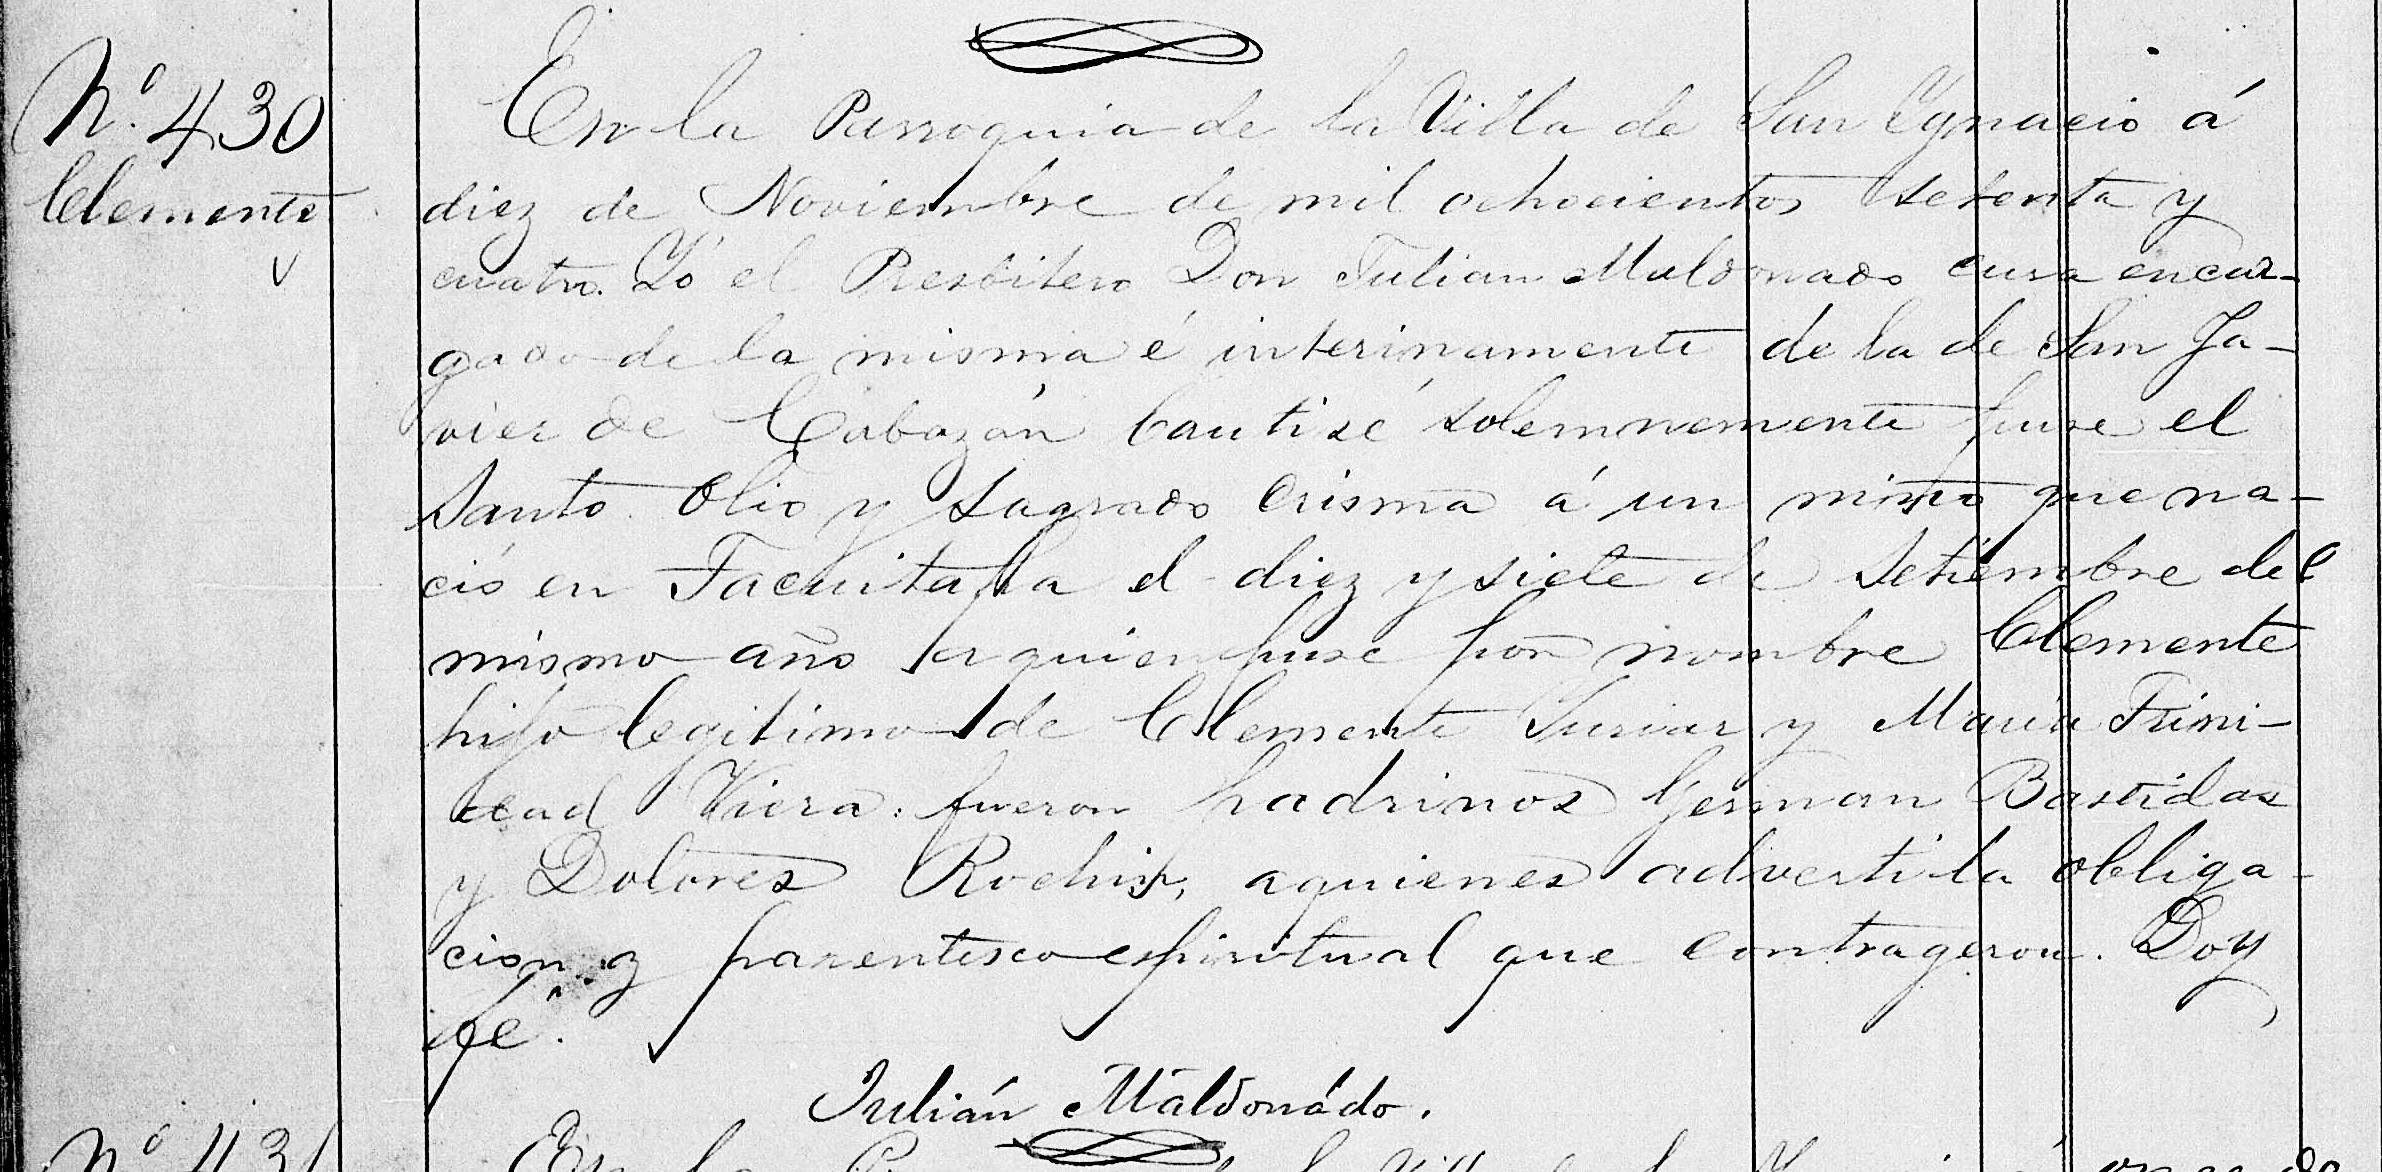 Nº. 430
Clemente
En la Parroquia de la Villa de San Ygnacio á
diez de Noviembre de mil ochocientos setenta y
cuatro. Yó el Presbitero Don Julian Maldonado cura encar-
gado de la misma é interinamente de la de San Ja-
vier de Cabazán bautisé solemnemente puse el
Santo Olio y Sagrado Crisma á un niño que na-
ció en Tacuitapa el diez y siete de Setiembre del
mismo año a quien puse por nombre Clemente
hijo legitimo de Clemente y Maria Trini-
dad Viera: fueron padrinos German Bastidas
y Dolores Rochin, aquienes adverti la obliga-
cion y parentesco espiritual que contrageron. Doy
fé.
Julián Maldonádo.
Nº 431
En la de la